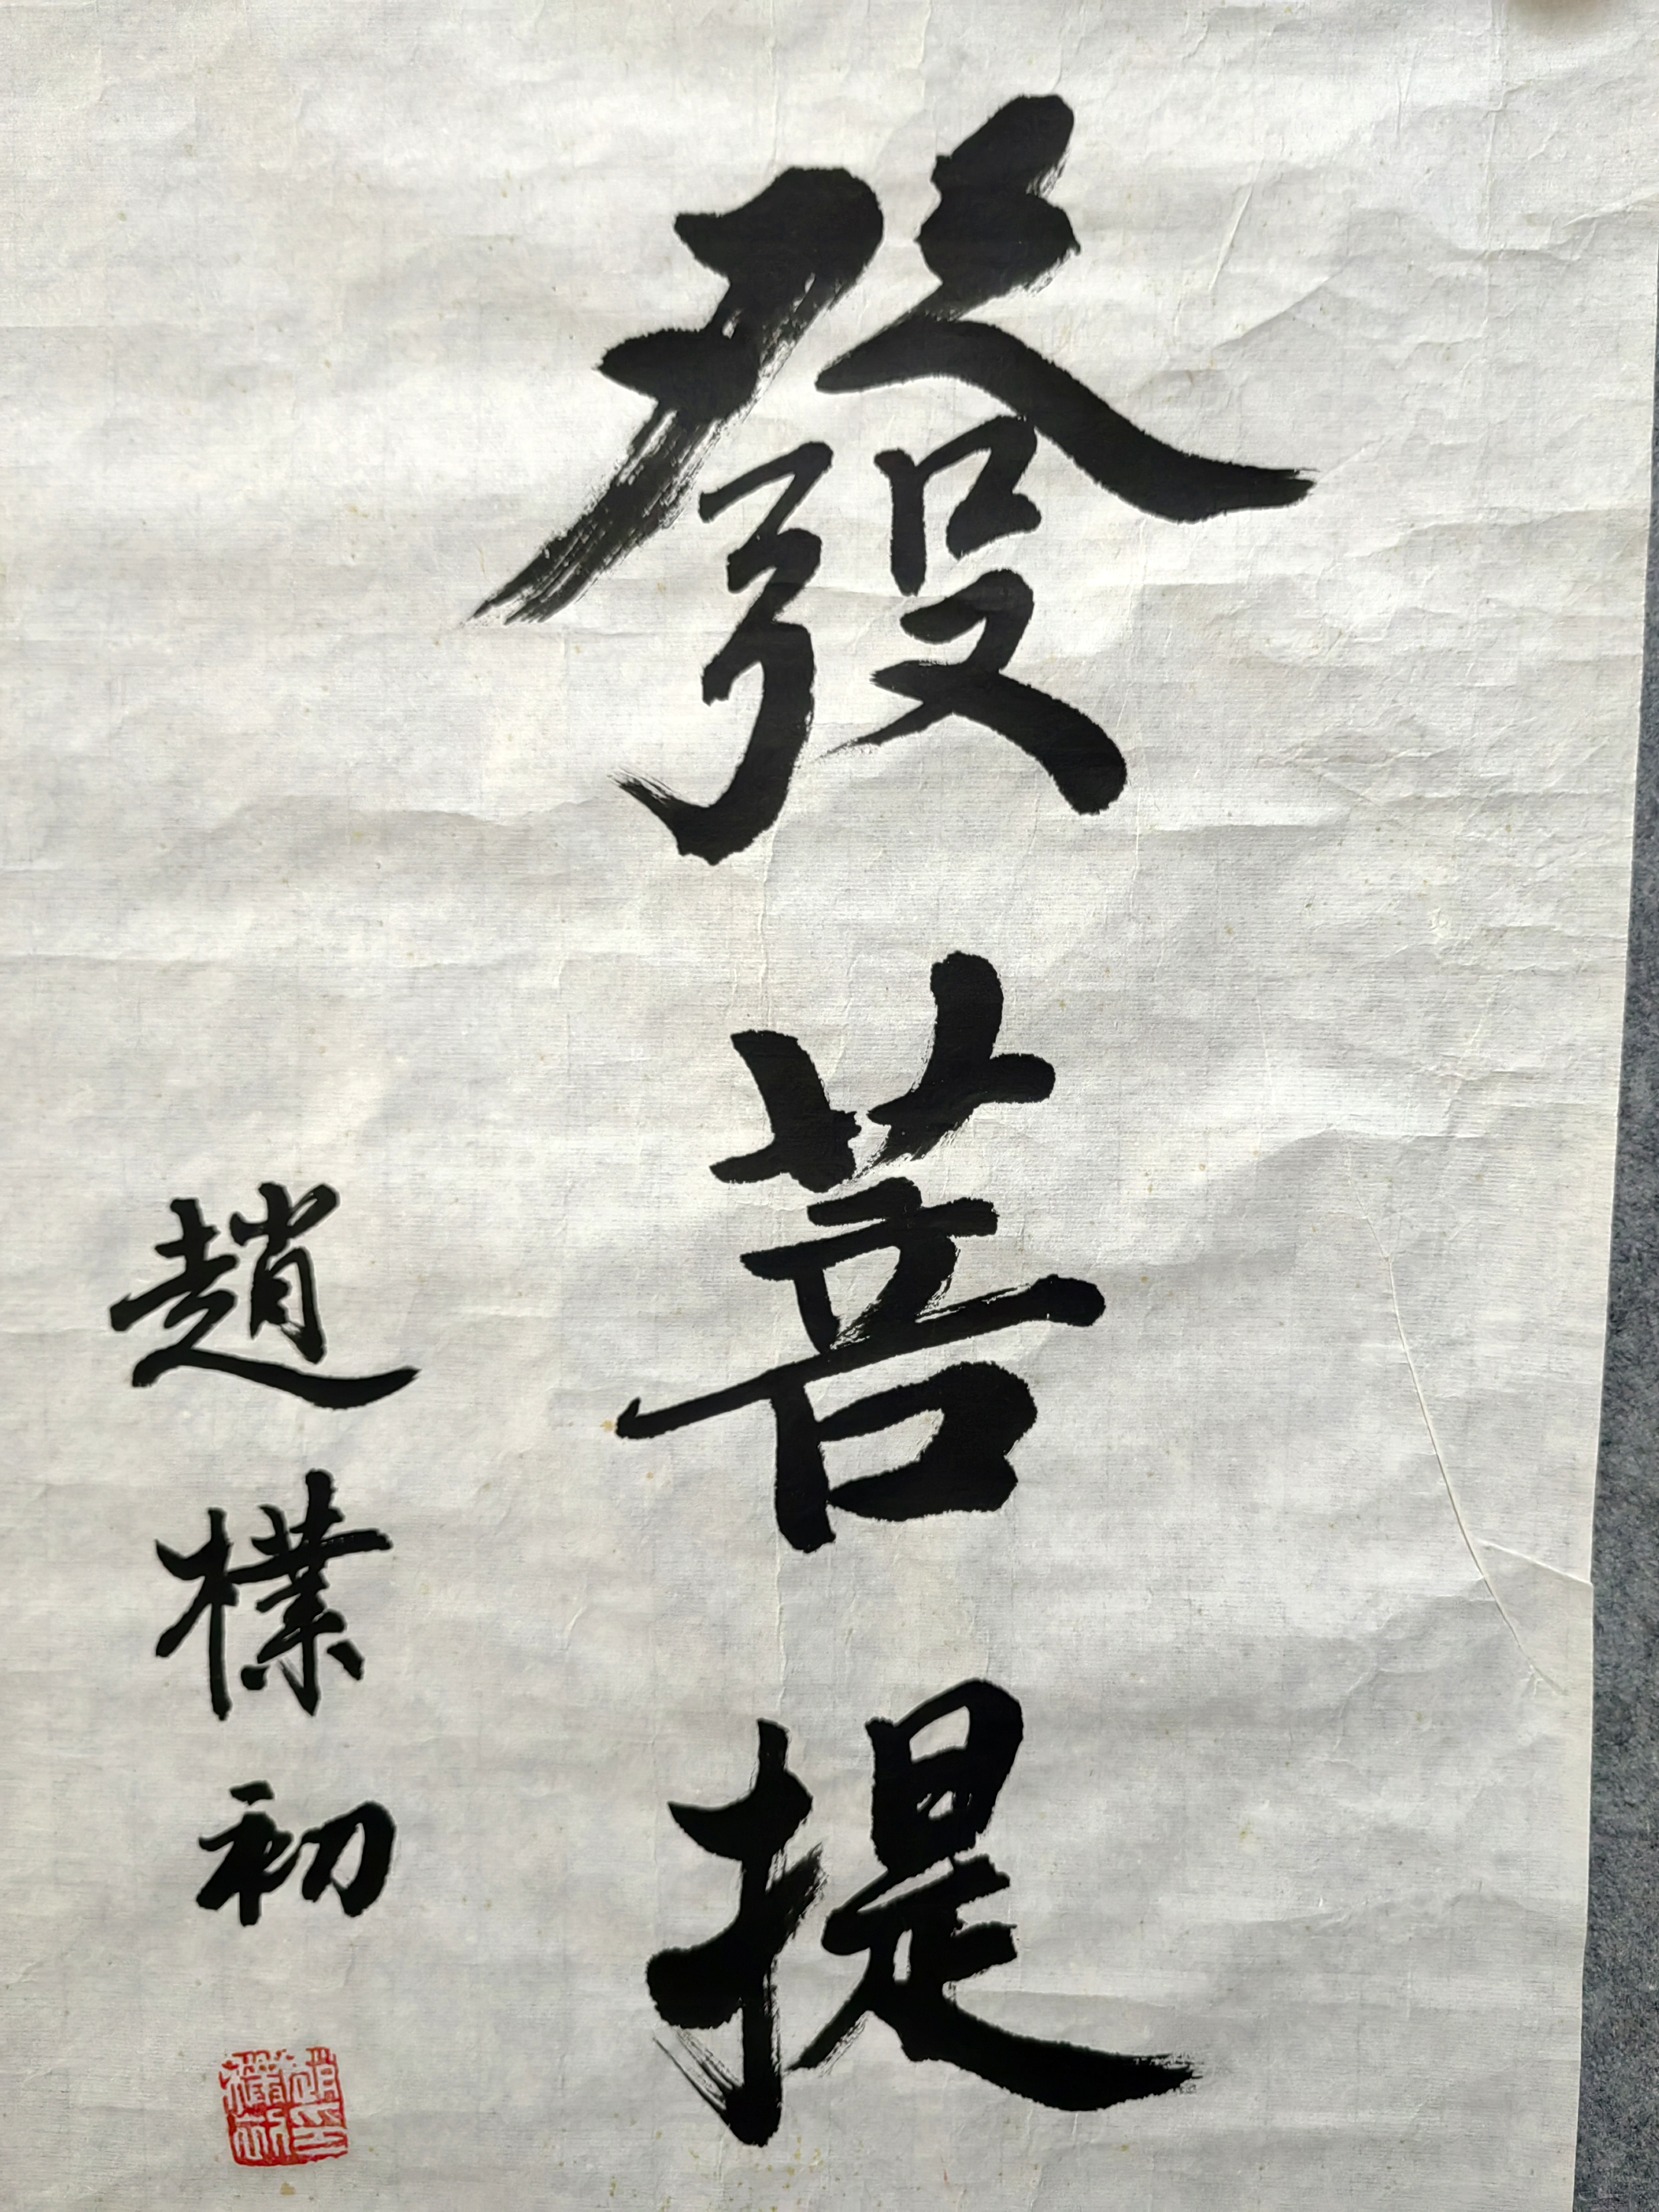 發菩提
趙樸初
趙樸初印